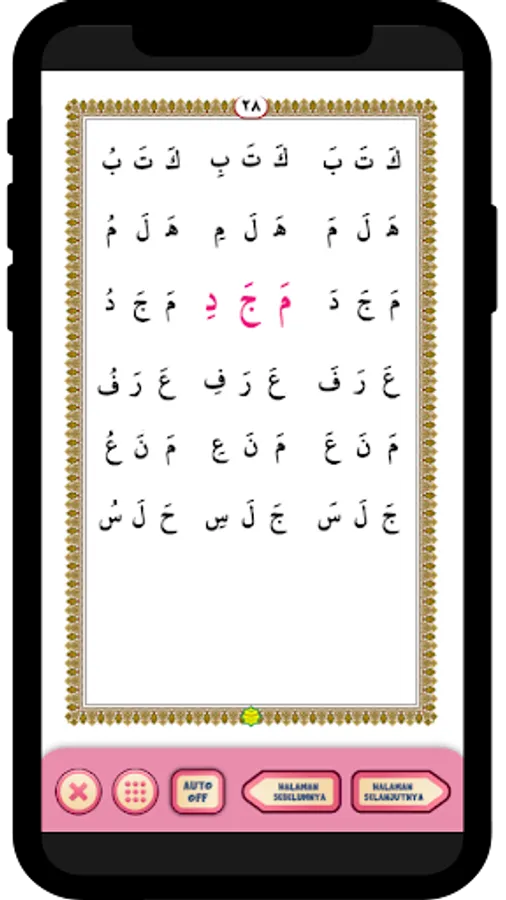 ٢٨
كَ تَ بَ كَ تَ بِ كَ تَ بُ
هَ لَ مَ هَ لَ مِ هَ لَ مُ
مَ جَ دَ مَ جَ دِ مَ جَ دُ
عَ رَ فَ عَ رَ فِ عَ رَ فُ
مَ نَ عَ مَ نَ عِ مَ نَ عُ
جَ لَ سَ جَ لَ سِ حَ لَ سُ
AUTO OFF
HALAMAN SEBELUMNYA
HALAMAN SELANJUTNYA